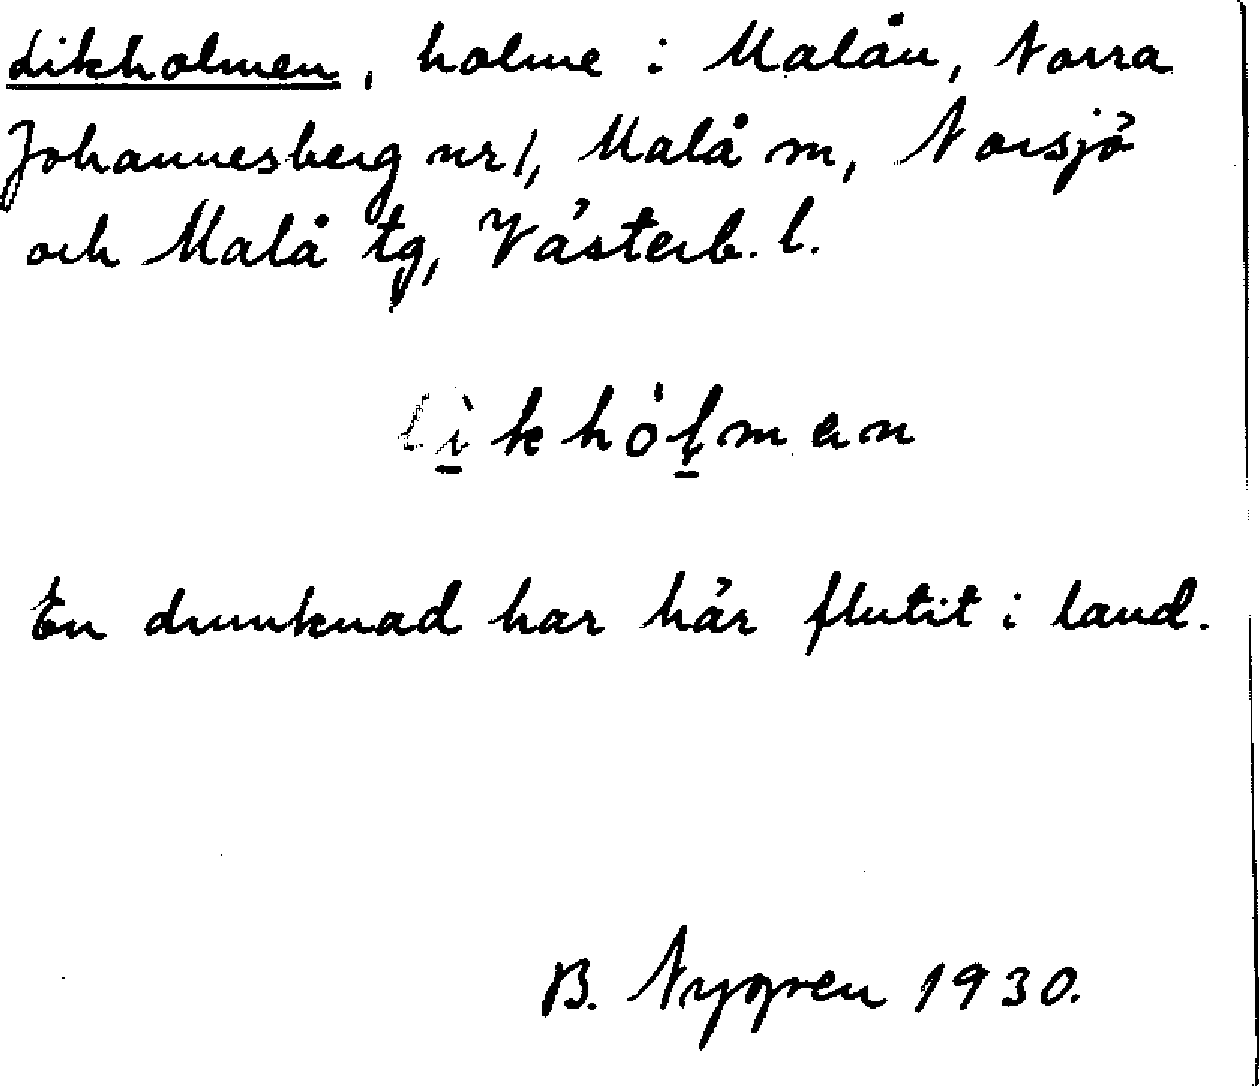 Likholmen, holme i Malån, Norra
Johannesberg nr 1, Malå sn, Norsjö
och Malå tg, Västerb. l.
lìkhól̠man
En drunknad har här flutit i land.
B. Nygren 1930.